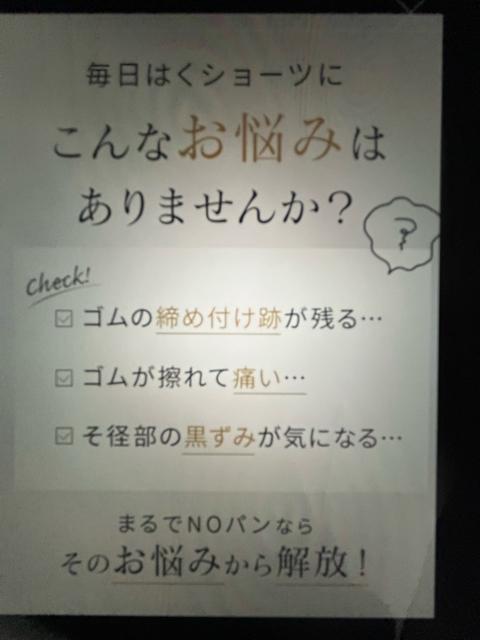 毎日はくショーツに
こんなお悩みは
ありませんか？
?
Check!
ゴムの締め付け跡が残る…
ゴムが擦れて痛い…
そ径部の黒ずみが気になる…
まるでNOパンなら
そのお悩みから解放！